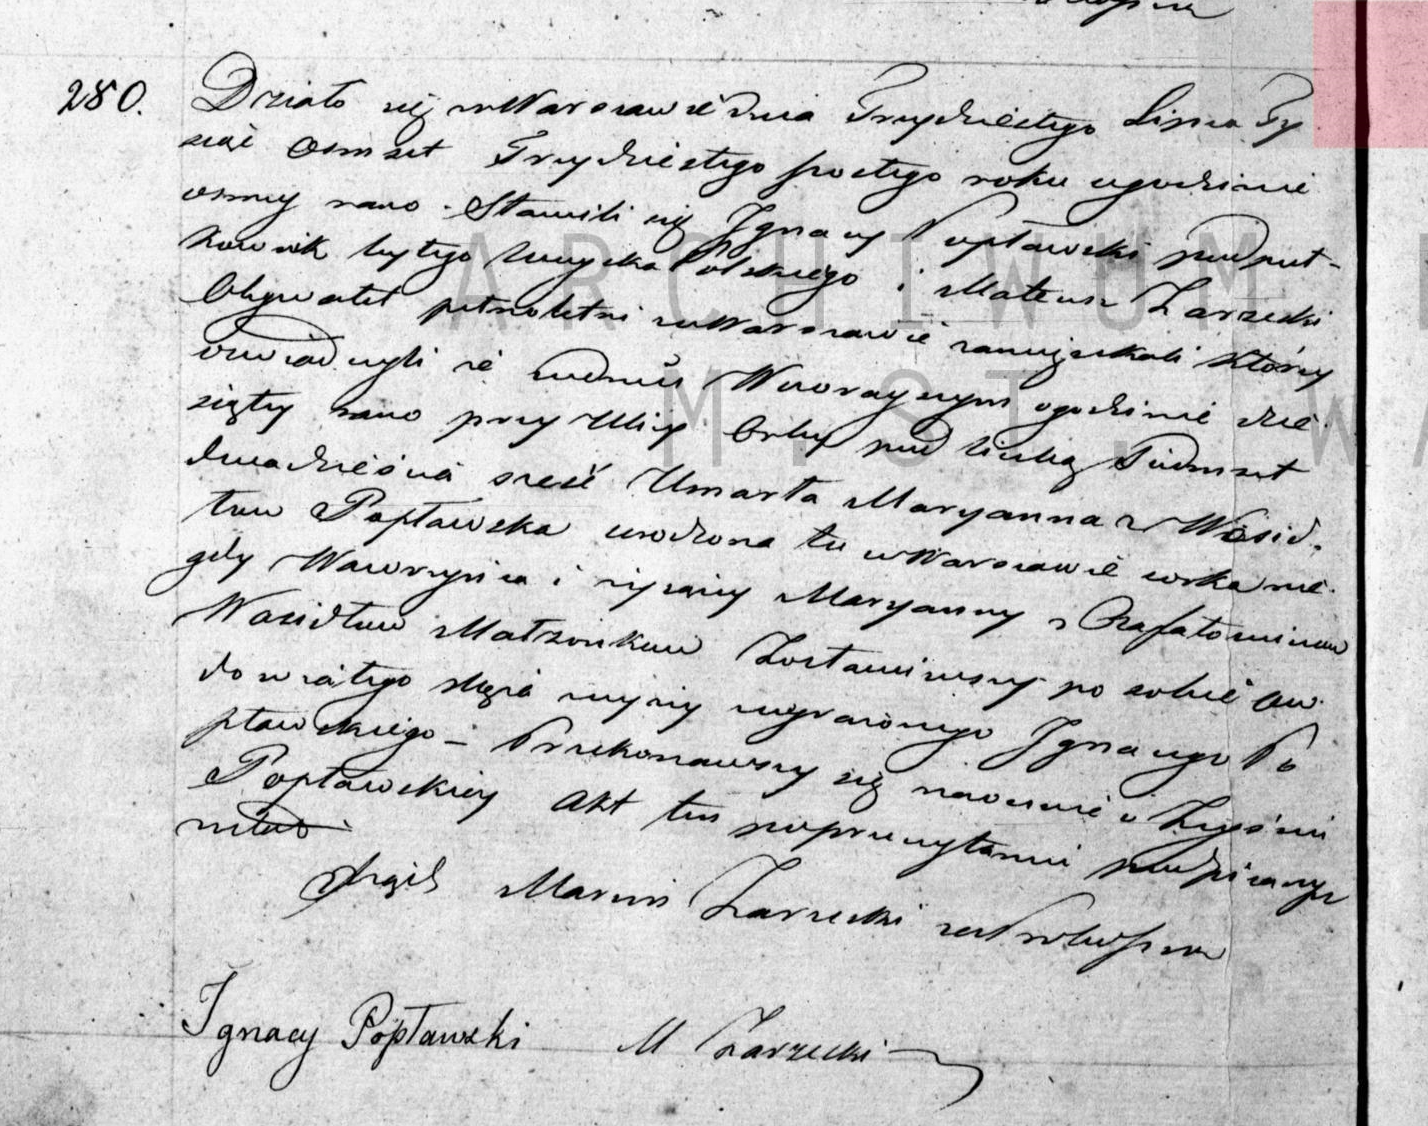 280.
Działo się w Warszawie dnia Trzydziestego Lipca Ty
siąc Osmset Trzydziestego szostego roku o godzinie
osmy rano. Stawili się Ignacy Popławski podpuł-
kownik bytego woyska Polskiego i Mateusz Zarzecki
Obywatel pełnoletni w Warszawie zamieszkali którzy
oswiadczyli iż w dniu Wczorayszym o godzinie dzie-
siąty rano przy Ulicy pod liczbą Siedmset
dwadzieścia sześć Umarła Maryanna z Wosid-
łow Popławska urodzona tu w Warszawie w rku nie-
gdy Wawrzyńca i żyjący Maryanny z Rafałowiczow
Wosidłow Małżonkow Zostawiwszy po sobie Ow-
dowiałego Męża wyżej wyrażonego Ignacego Po
pławskiego – Przekonawszy się naocznie o Zejściu
Popławskiey Akt ten po przeczytaniu podpisany
został
Xiądz Marcin Zarzecki za Proboszcza
Ignacy Popławski M Zarzecki
ARCHIWUM
M. ST. WA